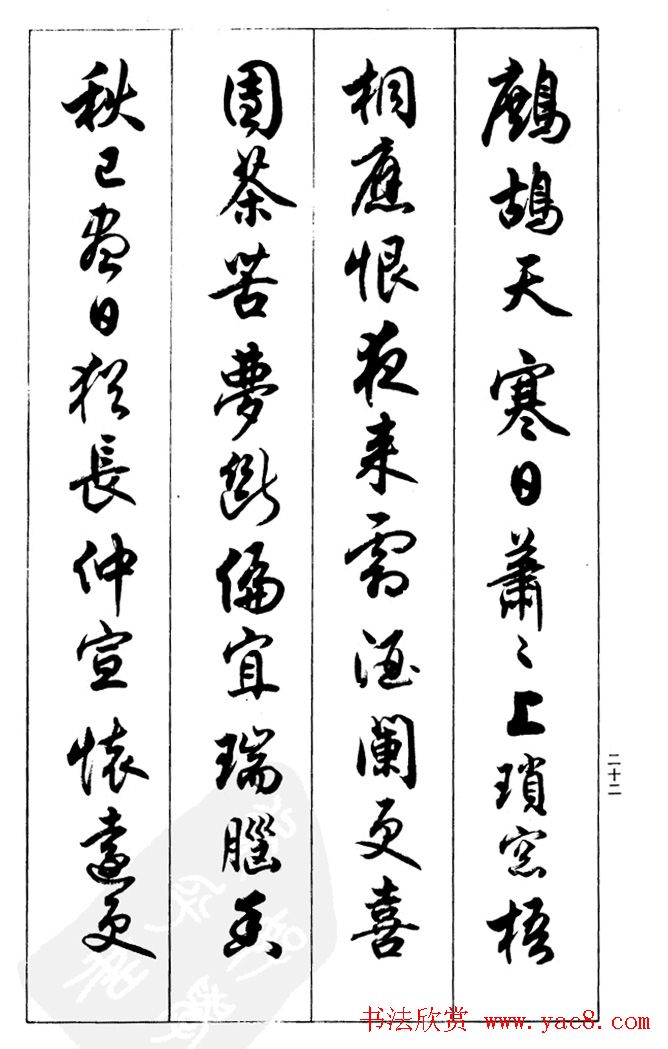 鷓鴣天 寒日蕭〻上瑣窓梧
桐應恨夜来霜酒闌更喜
團茶苦夢斷偏宜瑞腦香
秋已盡日猶長仲宣懷遠更
二十二
书法欣赏 www.yac8.com